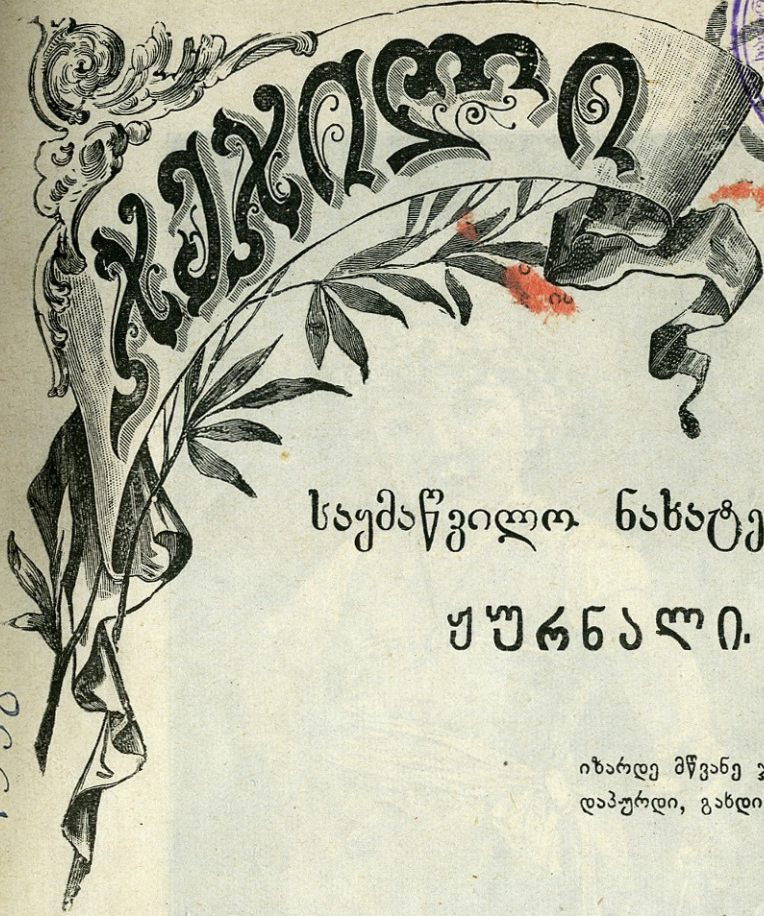 ჯეჯილი
საყმაწვილო ნახატე
ჟურნალი.
იზარდე მწვანე ჯ
დაპურდი, გახდი